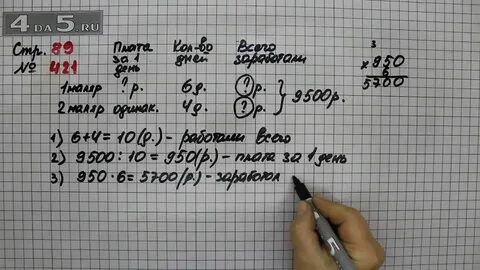 4DA5.RU
Стр. 89 Плата за 1 день Кол-во дней Всего заработали
№ 421
1 маляр ? р. 6 д. ? р.
2 маляр одинак. 4 д. ? р. } 9500 р.
3
× 950
6
5700
1) 6+4=10(р.) - работали всего
2) 9500:10=950(р.) - плата за 1 день
3) 950·6=5700(р.) - заработал